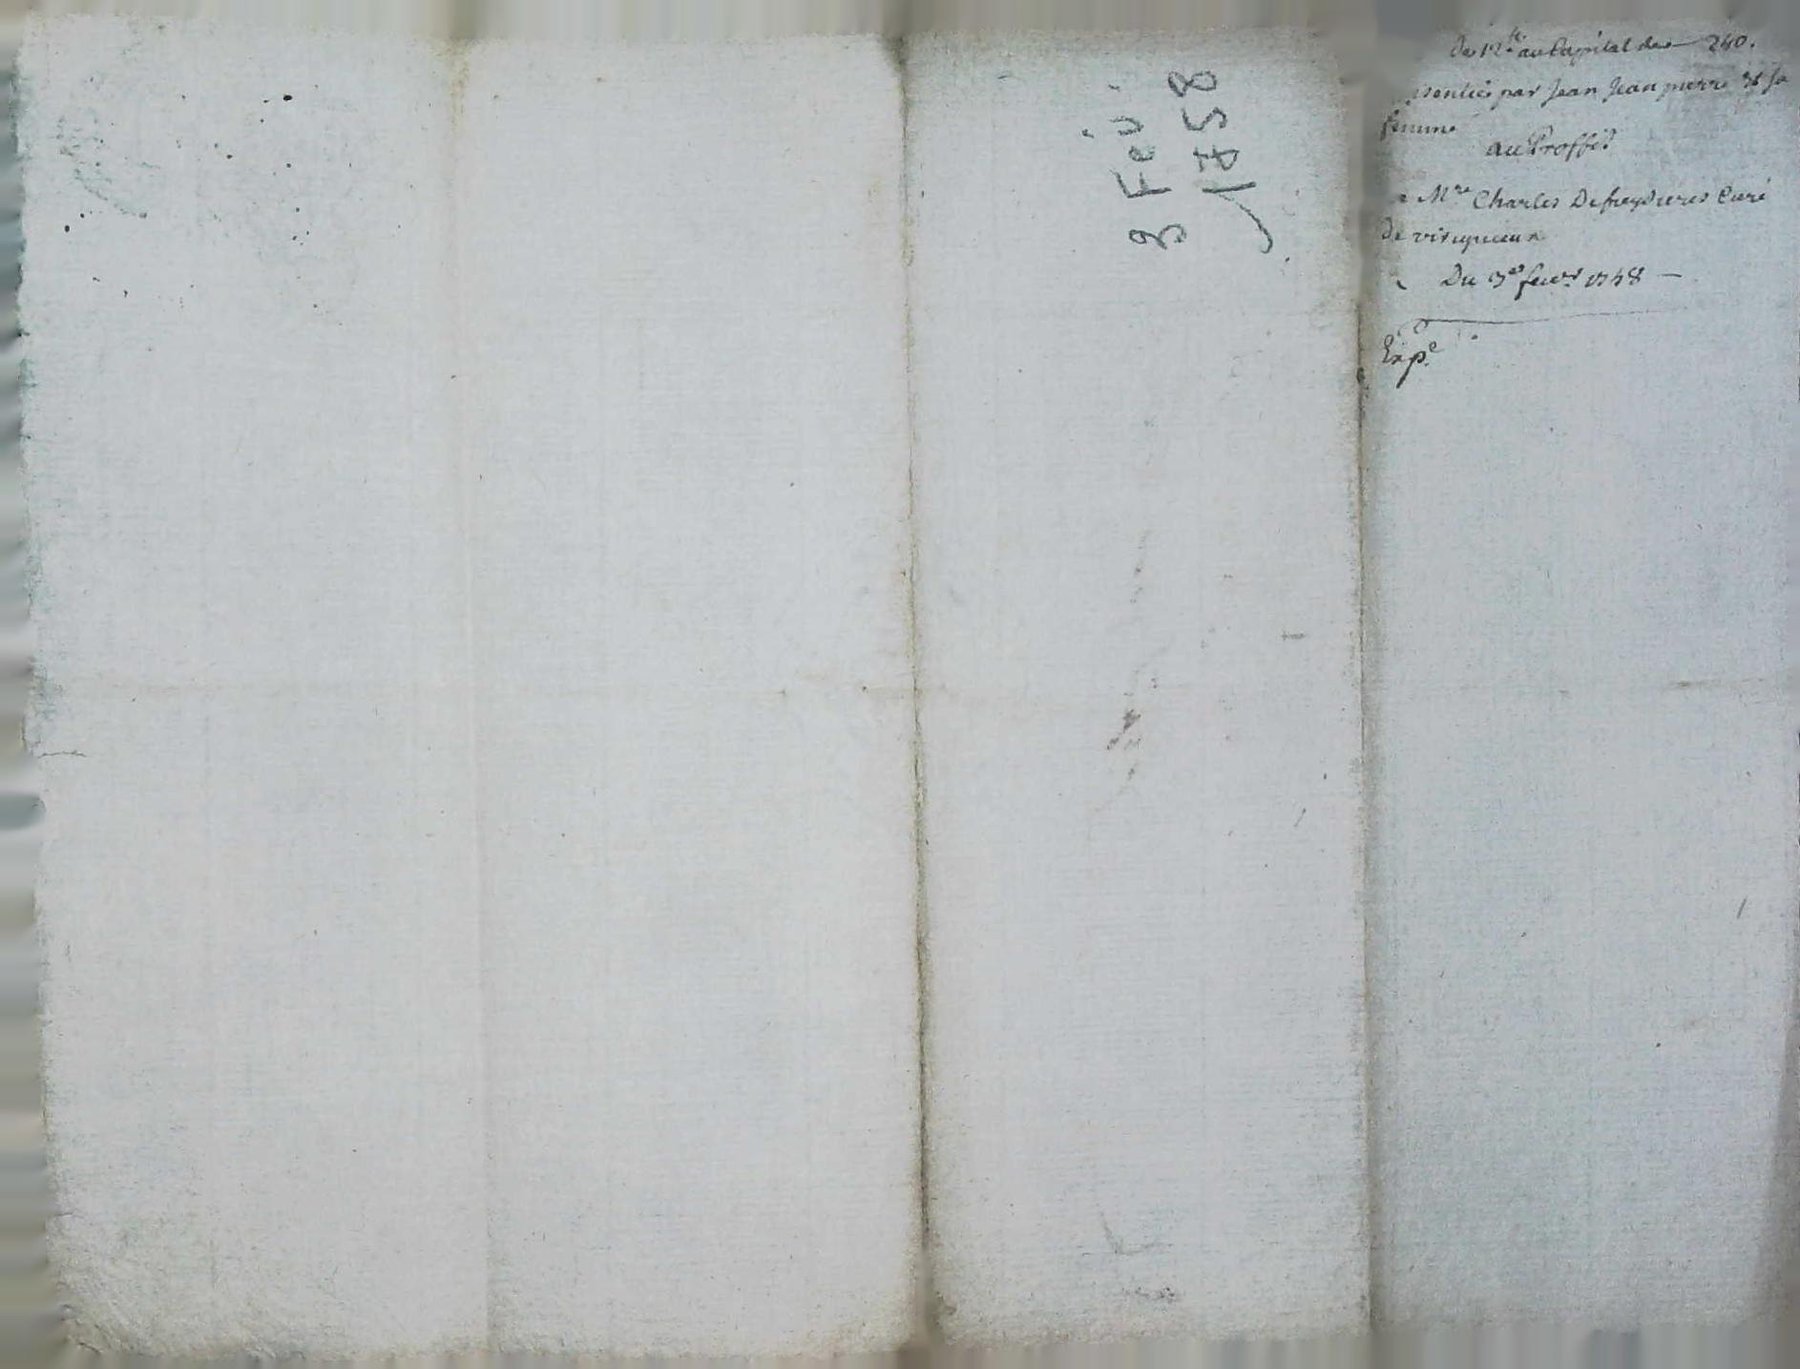 3 Fév.
1758
De 12# au Capital de 240.
par Jean Jean pierre & sa
femme
au Proffit
Mre Charles Defreydieres Curé
De virignieux
Du 3e fevr 1758
Expe